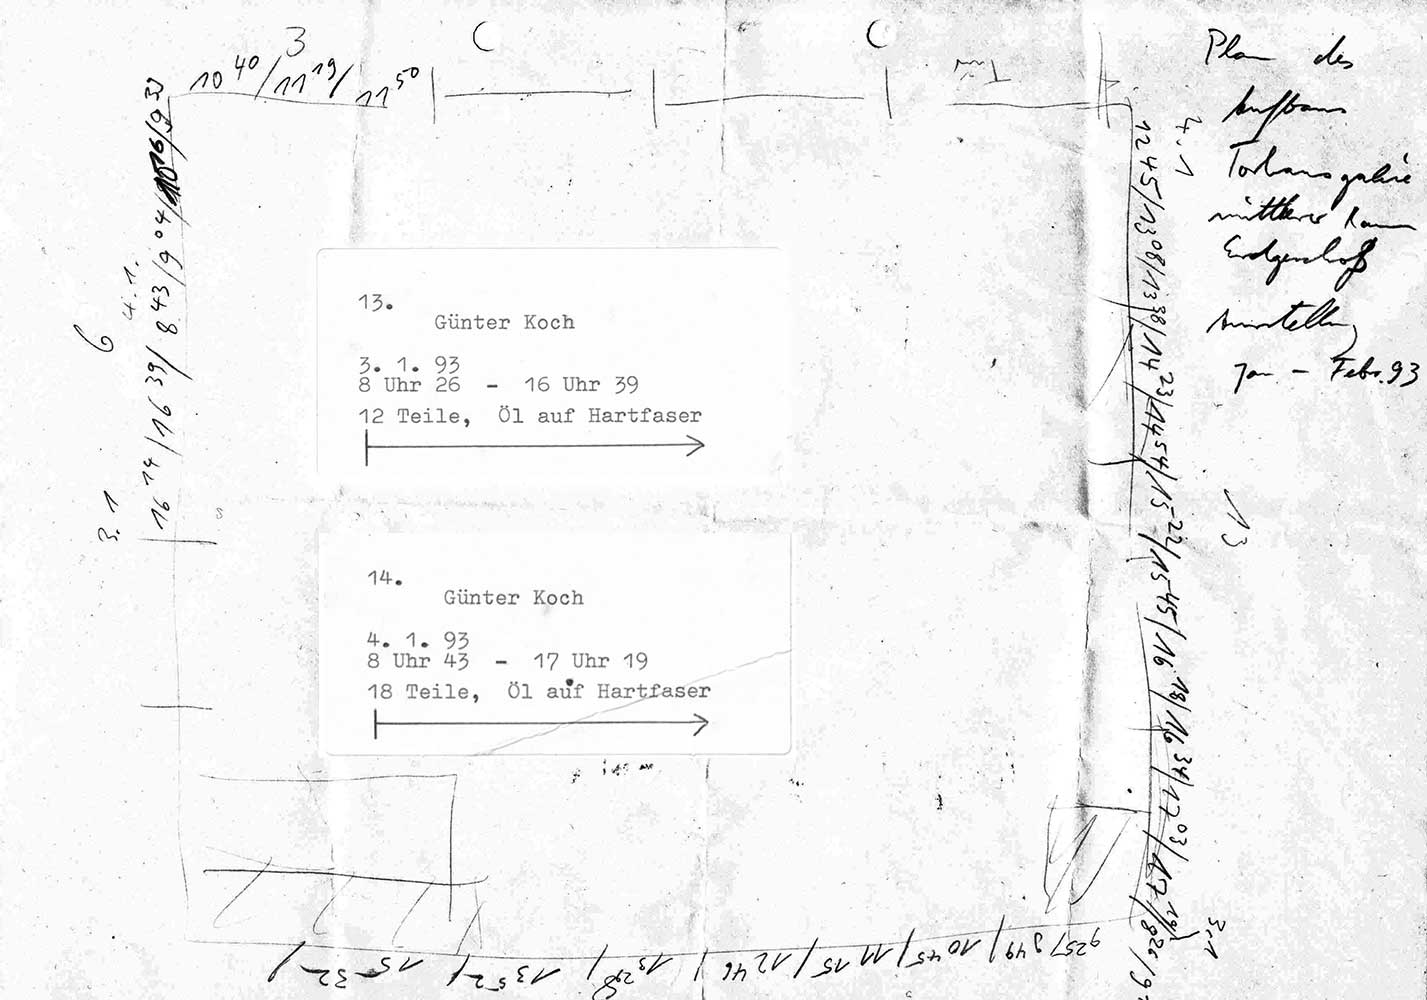 3
10 40 / 11 19 / 11 50
Tür
Plan des
Aufbaus
Torhausgalerie
mittlerer Raum
Erdgeschoß
Ausstellung
Jan – Febr. 93
6
4.1.
3.1
16 14 / 16 39 / 8 43 / 9 04 / 10 16 / 9 39
13.
Günter Koch
3. 1. 93
8 Uhr 26 - 16 Uhr 39
12 Teile, Öl auf Hartfaser
14.
Günter Koch
4. 1. 93
8 Uhr 43 - 17 Uhr 19
18 Teile, Öl auf Hartfaser
4.1
12 45 / 13 08 / 13 38 / 14 23 / 14 54 / 15 22 / 15 45 / 16 18 / 16 34 / 17 03 / 17 19 / 8 26 /
13
3.1
9 25 / 9 49 / 10 45 / 11 15 / 12 46 / 13 28 / 13 52 / 15 32 /